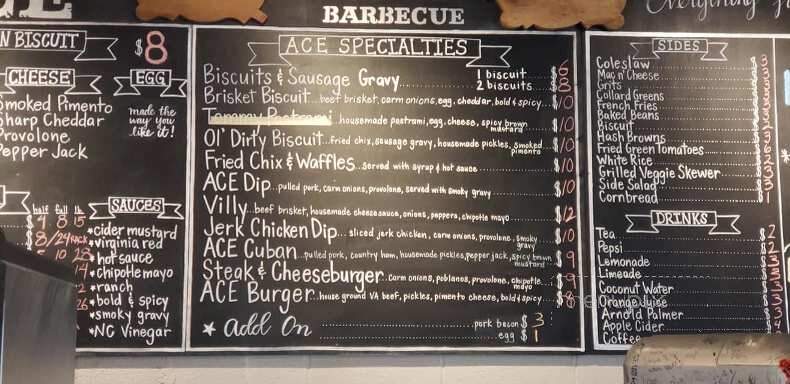 BARBECUE
N BISCUIT $8
CHEESE
Smoked Pimento
Sharp Cheddar
Provolone
Pepper Jack
EGG
made the
way you
like it!
half full lb
SAUCES
*cider mustard
*virginia red
*hot sauce
*chipotle mayo
*ranch
*bold & spicy
*smoky gravy
*NC Vinegar
ACE SPECIALTIES
Biscuits & Sausage Gravy 1 biscuit $6
2 biscuits $8
Brisket Biscuit beef brisket, carm onions, egg, cheddar, bold & spicy $10
Tammy Pastrami housemade pastrami, egg, cheese, spicy brown mustard $10
Ol' Dirty Biscuit fried chix, sausage gravy, housemade pickles, smoked pimento $10
Fried Chix & Waffles served with syrup & hot sauce $10
ACE Dip pulled pork, carm onions, provolone, served with smoky gravy $10
Villy beef brisket, housemade cheese sauce, onions, peppers, chipotle mayo $12
Jerk Chicken Dip sliced jerk chicken, carm onions, provolone, smoky gravy $10
ACE Cuban pulled pork, country ham, housemade pickles, pepper jack, spicy brown mustard $9
Steak & Cheeseburger carm onions, poblanos, provolone, chipotle mayo $9
ACE Burger house ground VA beef, pickles, pimento cheese, bold & spicy $8
* Add On pork bacon $3
egg $1
Everything
SIDES
Coleslaw
Mac n' Cheese
Grits
Collard Greens
French Fries
Baked Beans
Biscuit
Hash Browns
Fried Green Tomatoes
White Rice
Grilled Veggie Skewer
Side Salad
Cornbread
DRINKS
Tea $2
Pepsi
Lemonade
Limeade
Coconut Water
Orange Juice
Arnold Palmer
Apple Cider
Coffee